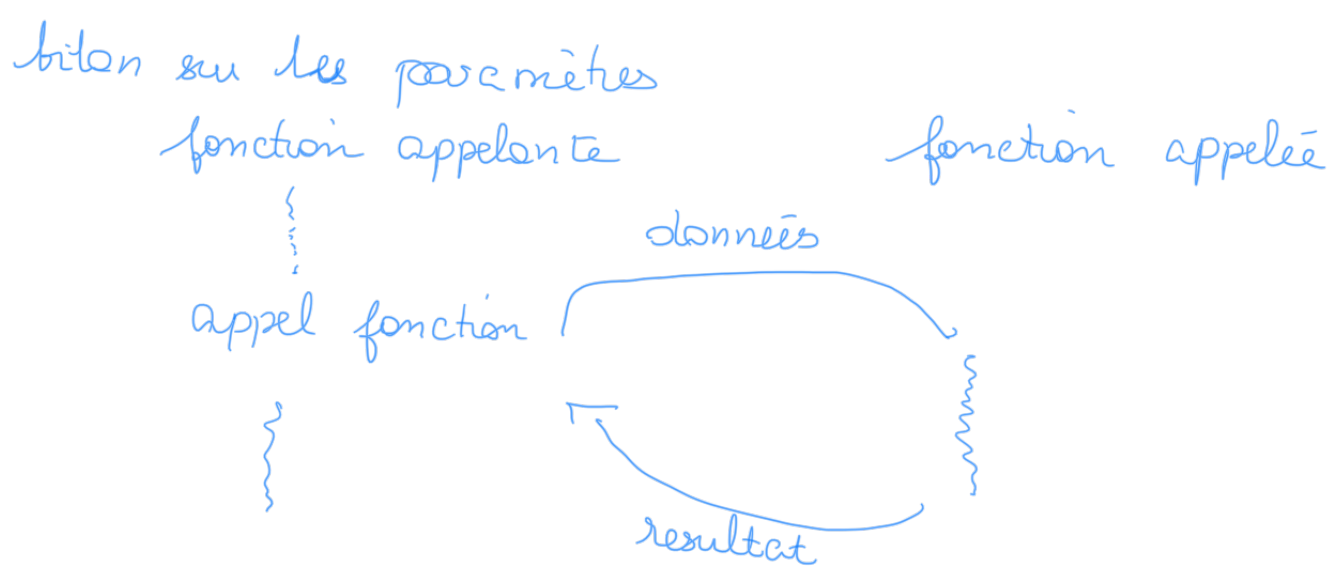 bilan sur les paramètres
fonction appelante fonction appelée
données
appel fonction
resultat